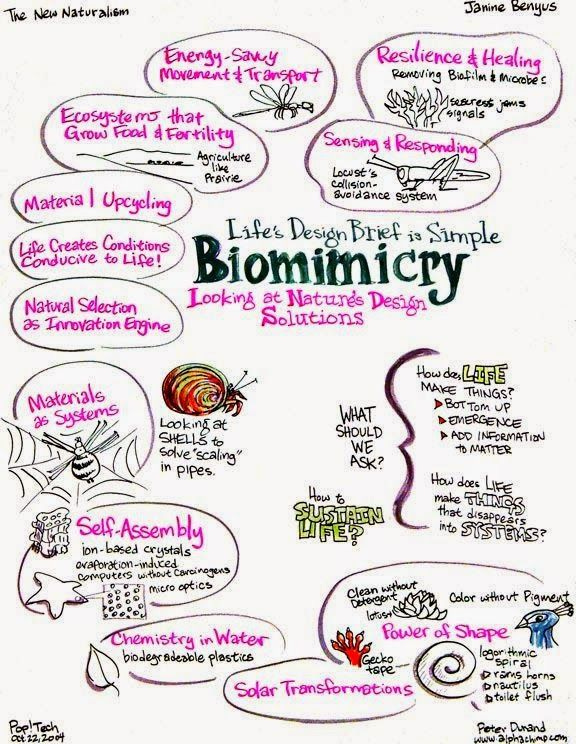 The New Naturalism
Janine Benyus
Energy-Savvy
Movement & Transport
Resilience & Healing
Removing Biofilm & Microbes
seacress jams
signals
Ecosystems that
Grow Food & Fertility
Agriculture
like
Prairie
Sensing & Responding
Locust's
collision-
avoidance system
Material Upcycling
Life Creates Conditions
Conducive to Life!
Natural Selection
as Innovation Engine
Life's Design Brief is Simple
Biomimicry
Looking at Nature's Design
Solutions
Materials
as Systems
Looking at
SHELLS to
solve "scaling"
in pipes.
WHAT
SHOULD
WE
ASK?
How does LIFE
MAKE THINGS?
BOTTOM UP
EMERGENCE
ADD INFORMATION
TO MATTER
How does LIFE
make THINGS
that disappears
into SYSTEMS?
How to
SUSTAIN
LIFE?
Self-Assembly
ion-based crystals
evaporation-induced
computers without carcinogens
micro optics
Chemistry in Water
biodegradeable plastics
Solar Transformations
Clean without
Detergent
lotus
Color without Pigment
Power of Shape
Gecko
tape
logorithmic
spiral
rams horns
nautilus
toilet flush
Pop!Tech
Oct 22, 2004
Peter Durand
www.alphachimp.com